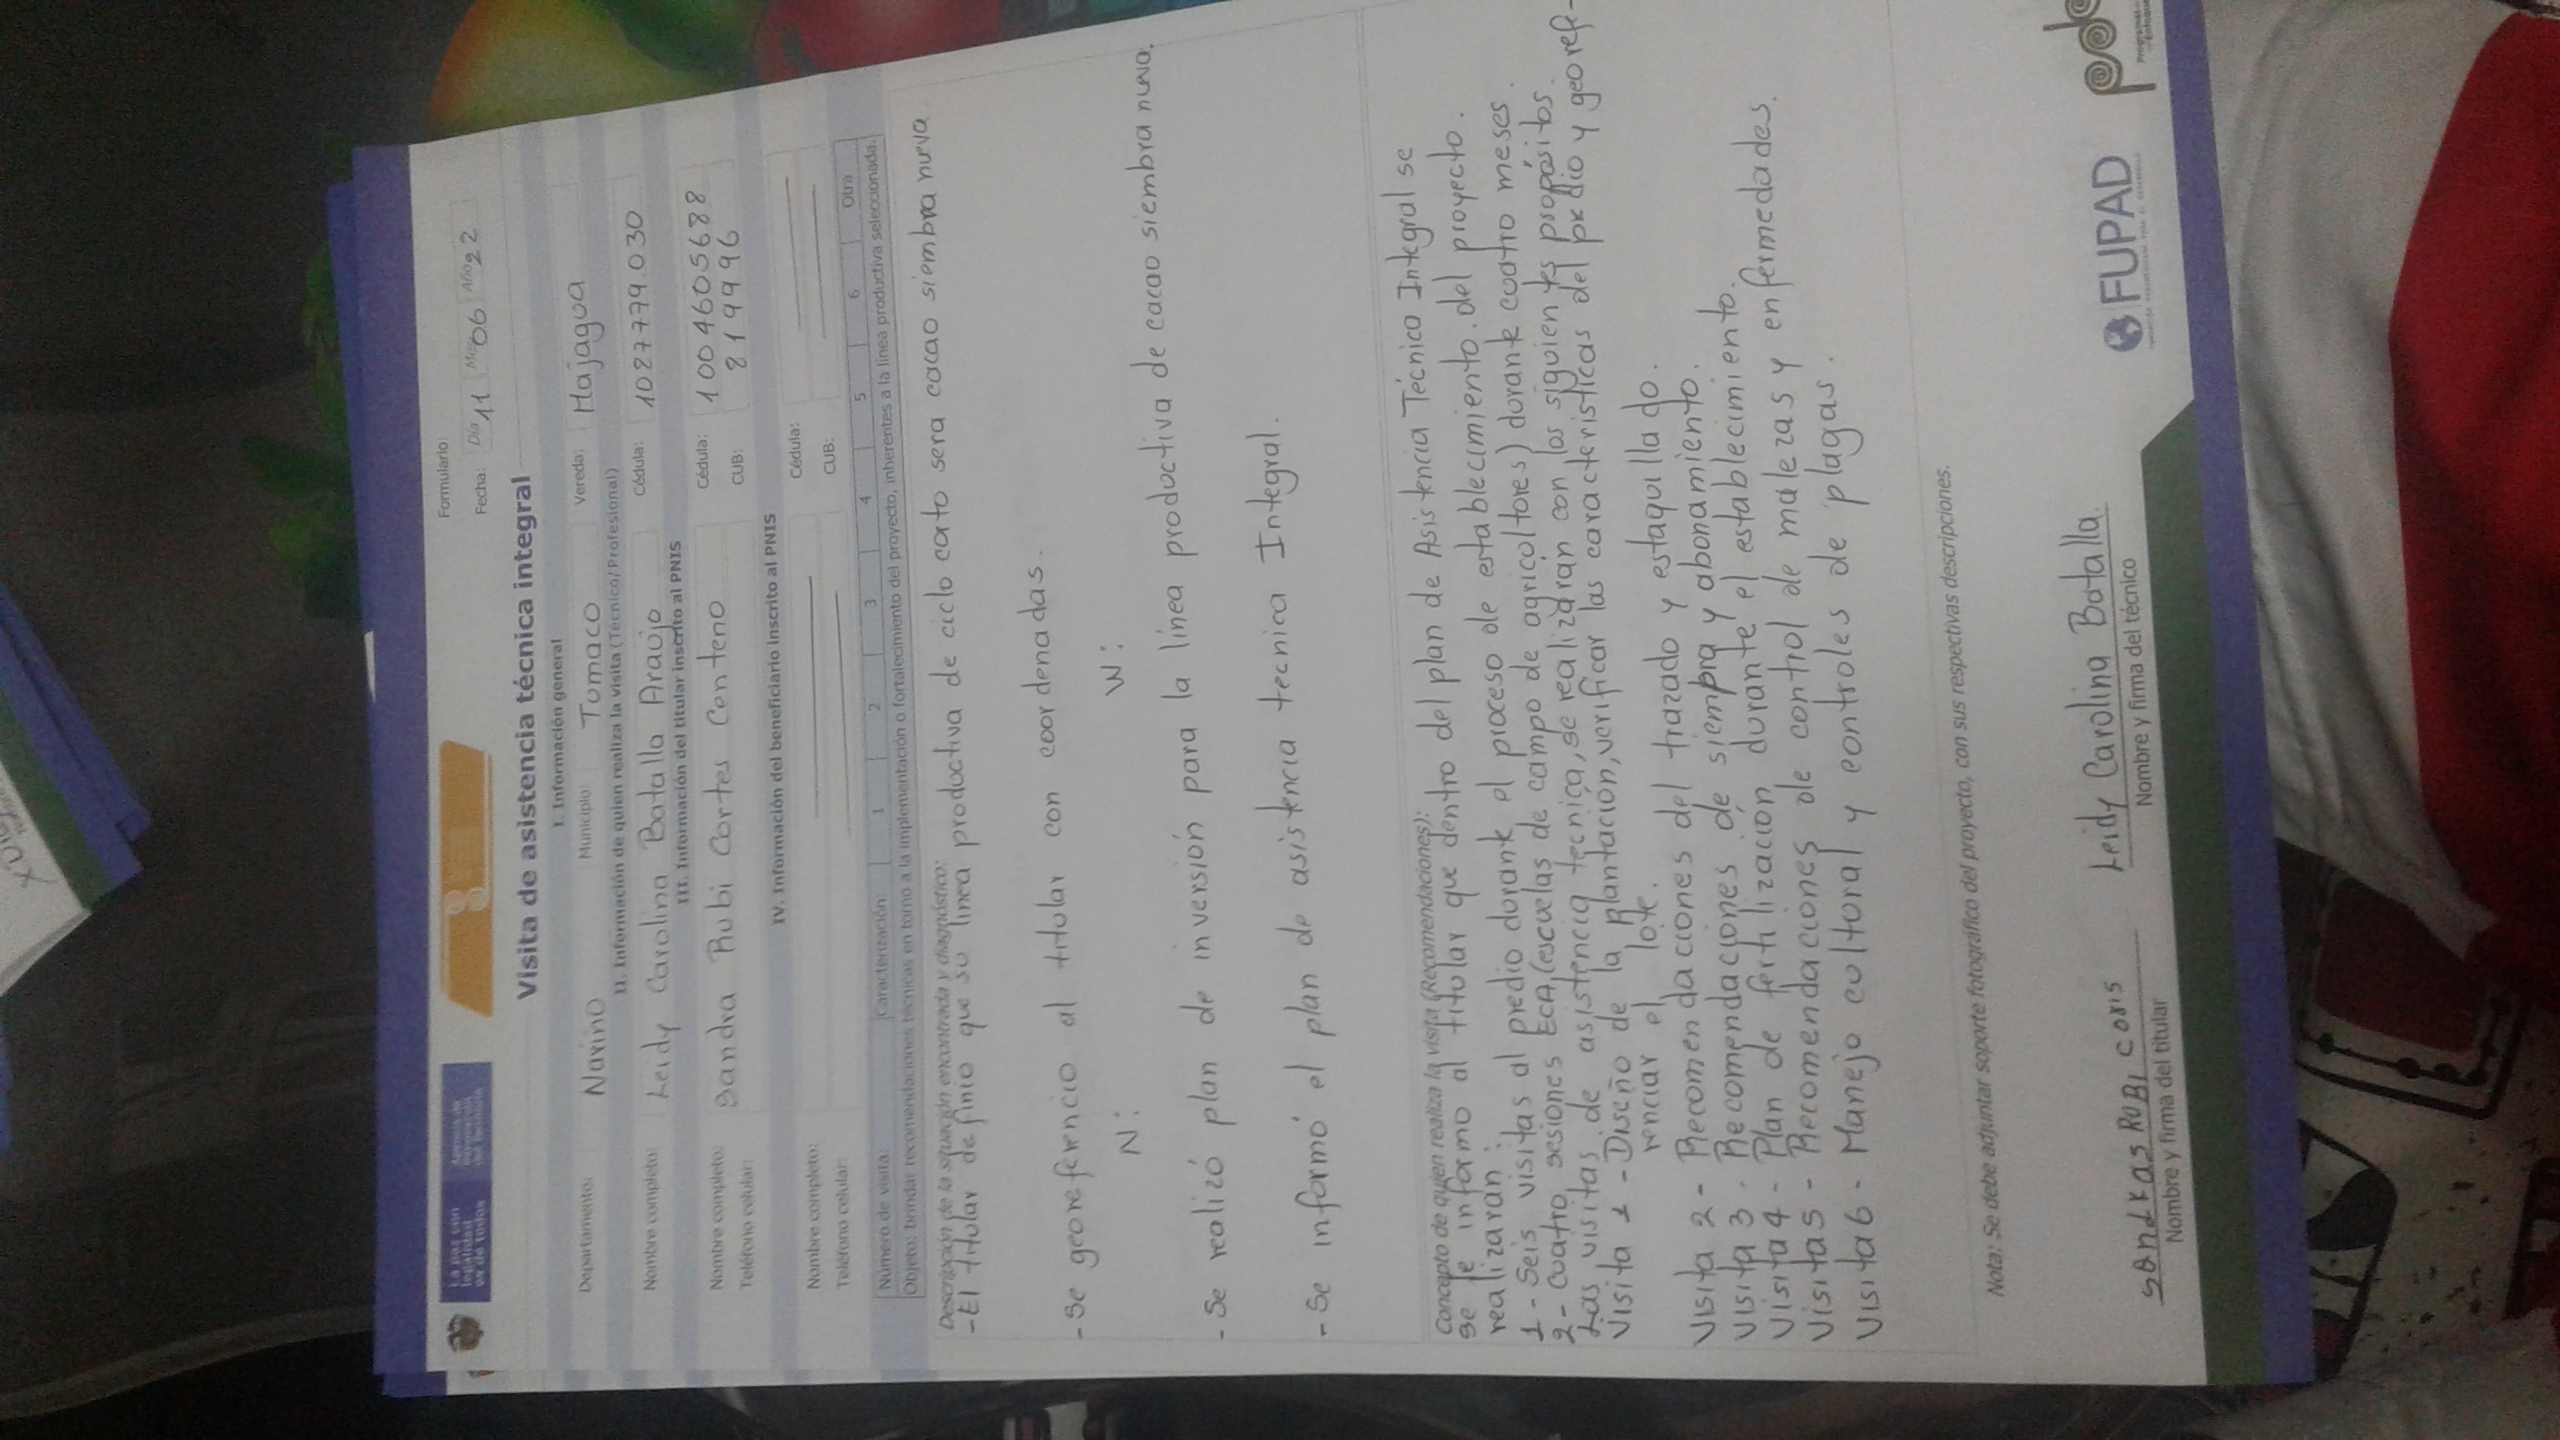 La paz con
legalidad
es de todos
Formulario:
Fecha: Día 11 Mes 06 Año 22
Visita de asistencia técnica integral
I. Información general
Departamento: Nariño Municipio: Tumaco Vereda: Majagua
II. Información de quien realiza la visita (Técnico/Profesional)
Nombre completo: Leidy Carolina Batalla Araujo Cédula: 1087779.030
III. Información del titular inscrito al PNIS
Nombre completo: Sandra Rubi Cortes Centeno Cédula: 1004605688
Teléfono celular: CUB: 8199996
IV. Información del beneficiario inscrito al PNIS
Nombre completo: Cédula:
Teléfono celular: CUB:
Número de visita: Caracterización: 1 2 3 4 5 6 Otra
Objeto: brindar recomendaciones técnicas en torno a la implementación o fortalecimiento del proyecto, inherentes a la línea productiva seleccionada.
Descripción de la situación encontrada y diagnóstico:
- El titular definio que su linea productiva de ciclo corto sera cacao siembra nueva.
- Se georeferencio al titular con coordenadas.
N: W:
- Se realizó plan de inversión para la línea productiva de cacao siembra nueva.
- Se informó el plan de asistencia tecnica Integral.
Concepto de quien realiza la visita (Recomendaciones):
se le informo al titular que dentro del plan de Asistencia Técnica Integral se
realizaran:
1- Seis visitas al predio durante el proceso de establecimiento del proyecto.
2- Cuatro sesiones ECA (escuelas de campo de agricultores) durante cuatro meses.
Las visitas de asistencia tecnica, se realizaran con los siguientes propósitos.
Visita 1 - Diseño de la plantación, verificar las caracteristicas del predio y georefe-
renciar el lote.
Visita 2 - Recomendaciones del trazado y estaquillado.
Visita 3 - Recomendaciones de siempra y abonamiento.
Visita 4 - Plan de fertilizacion durante el establecimiento.
Visita 5 - Recomendaciones de control de malezas y enfermedades.
Visita 6 - Manejo cultural y controles de plagas.
Nota: Se debe adjuntar soporte fotográfico del proyecto, con sus respectivas descripciones.
Leidy Carolina Batalla.
Nombre y firma del titular Nombre y firma del técnico
FUPAD